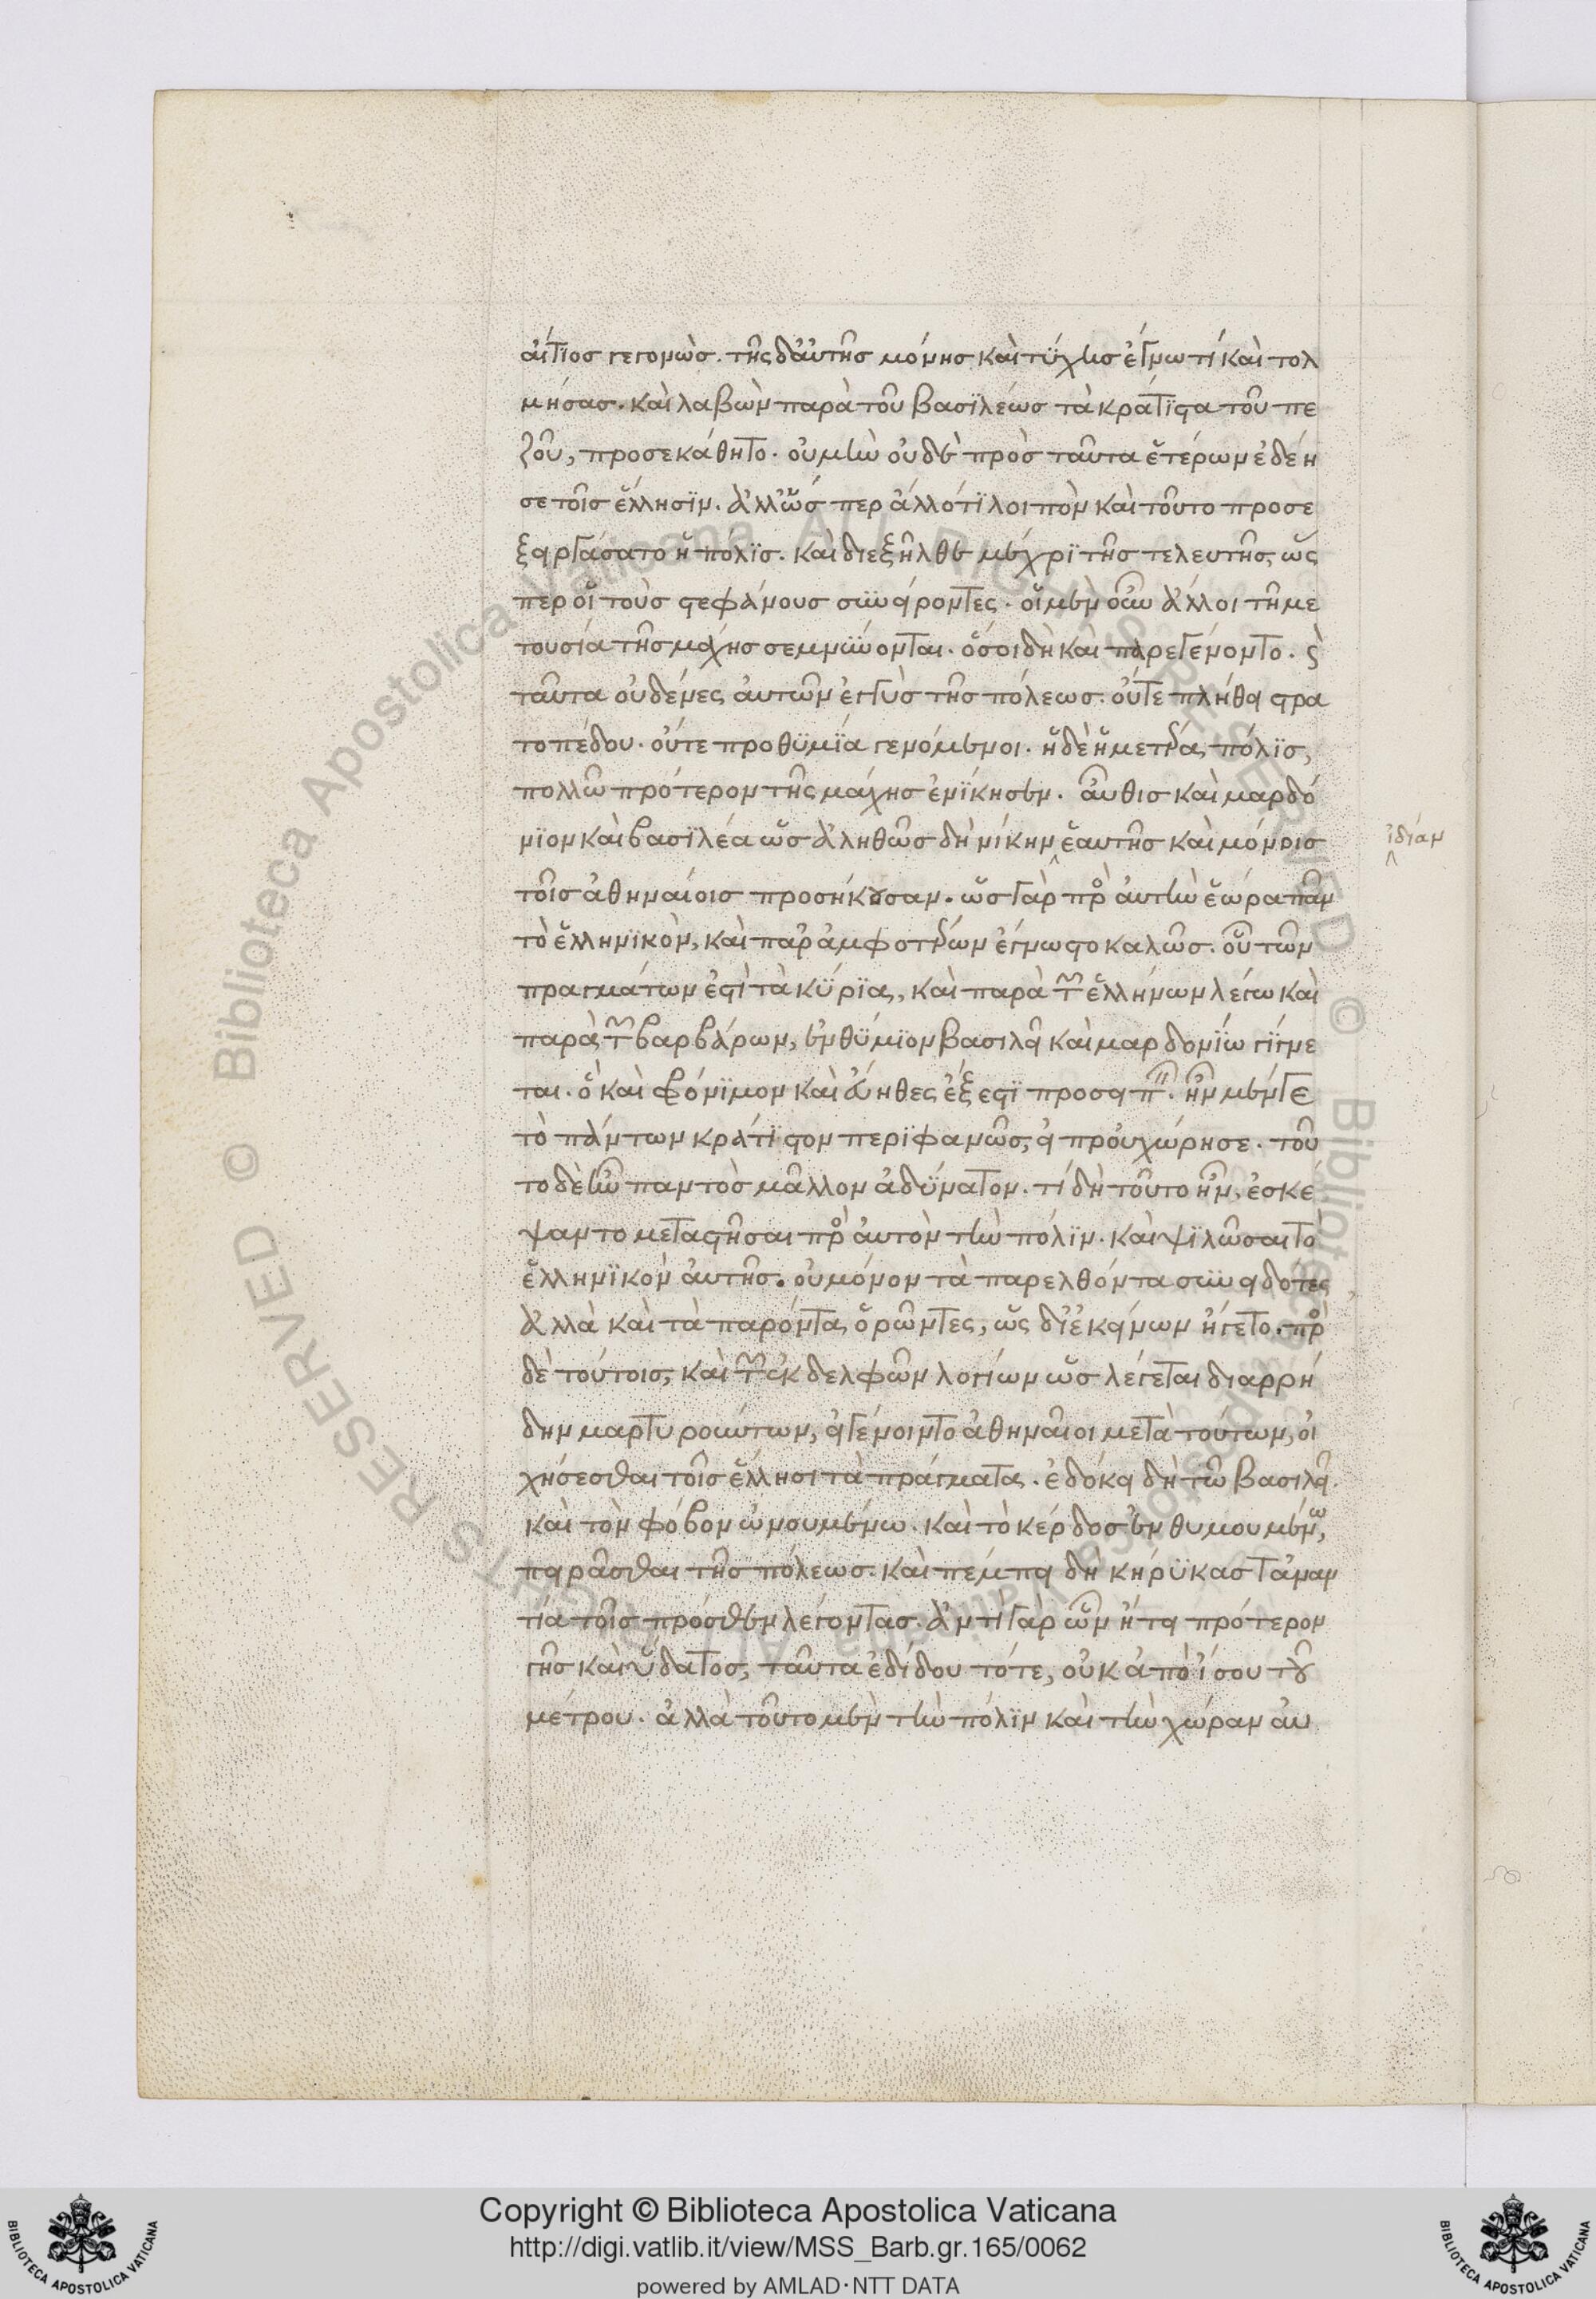 αἴτιος γεγονὼς. τῆς δ' αὐτῆς μόνης καὶ τύχης ἔγνω τί καὶ τολ
μήσας. καὶ λαβὼν παρὰ τοῦ βασϊλέως τὰ κράτϊστα τοῦ πε
ζοῦ, προσεκάθητο. οὐ μὴν οὐδὲ πρὸς ταῦτα ἑτέρων ἐδέη
σε τοῖς ἕλλησϊν. ἀλλ' ὥσπερ ἄλλό τϊ λοιπὸν καὶ τοῦτο προσε
ξειργάσατο ἡ πόλϊς. καὶ διεξῆλθε μέχρϊ τῆς τελευτῆς, ὥς
περ οἱ τοὺς στεφάνους συνείροντες. οἱ μὲν οὖν ἄλλοι τῆ με
τουσία τῆς μάχης σεμνύνονται. ὅσοι δὴ καὶ παρεγένοντο. καὶ
ταῦτα οὐδένες αὐτῶν ἐγγὺς τῆς πόλεως. οὔτε πλήθει στρα
τοπέδου. οὔτε προθϋμΐα γενόμενοι. ἡ δὲ ἡμετέρα πόλϊς,
πολλῶ πρότερον τῆς μάχης ἐνϊκησεν. αὖθις καὶ μαρδό
νϊον καὶ βασϊλέα ὡς ἀληθῶς δὴ νίκην ἑαυτῆς καὶ μόνοις
ἰδίαν
τοῖς ἀθηναίοις προσήκουσαν. ὡς γὰρ πρὸς αὐτὴν ἑώρα πᾶν
τὸ ἑλληνϊκὸν, καὶ παρ' ἀμφοτέρων ἔγνωστο καλῶς. οὗ τῶν
πραγμάτων ἐστὶ τὰ κύρϊα, καὶ παρὰ τῶν ἑλλήνων λέγω καὶ
παρὰ τῶν βαρβάρων, ἐνθύμϊον βασιλεῖ καὶ μαρδονίω γίγνε
ται. ὃ καὶ φρόνϊμον καὶ εὔηθες ἔξεστϊ προσειπεῖν. ἦν μέν γε
τὸ πάντων κράτϊστον περϊφανῶς, εἰ προὐχώρησε. τοῦ
το δὲ ἦν παντὸς μᾶλλον ἀδύνατον. τί δὴ τοῦτο ἦν, ἐσκέ
ψαντο μεταστῆσαι πρὸς αὐτὸν τὴν πόλϊν. καὶ ψϊλῶσαι τὸ
ἑλληνϊκὸν αὐτῆς. οὐ μόνον τὰ παρελθόντα συνειδότες
ἀλλὰ καὶ τὰ παρόντα ὁρῶντες, ὡς δϊ' ἐκείνων ἤγετο. πρὸς
δὲ τούτοις, καὶ τῶν ἐκ δελφῶν λογίων ὡς λέγεται διαρρή
δην μαρτυρούντων, εἰ γένοιντο ἀθηναῖοι μετὰ τούτων, οἰ
χήσεσθαι τοῖς ἕλλησι τὰ πράγματα. ἐδόκει δὴ τῶ βασιλεῖ.
καὶ τὸν φόβον ὠνουμένω. καὶ τὸ κέρδος ἐνθυμουμένω,
πειρᾶσθαι τῆς πόλεως. καὶ πέμπει δὴ κήρϋκας τἀναν
τία τοῖς πρόσθεν λέγοντας. ἀντὶ γὰρ ὧν ἤτει πρότερον
γῆς καὶ ὕδατος, ταῦτα ἐδίδου τότε, οὐκ ἀπὸ ἴσου τοῦ
μέτρου. ἀλλὰ τοῦτο μὲν τὴν πόλϊν καὶ τὴν χώραν αὐ
Copyright © Biblioteca Apostolica Vaticana
http://digi.vatlib.it/view/MSS_Barb.gr.165/0062
powered by AMLAD·NTT DATA